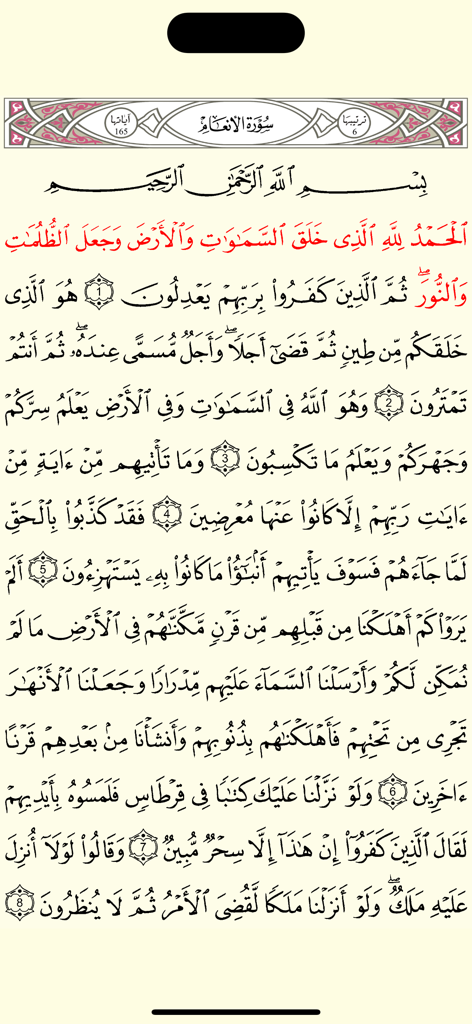 ترتيبها
6
سُورَةُ الأَنْعَامِ
آياتها
165
بِسْمِ ٱللَّهِ ٱلرَّحْمَٰنِ ٱلرَّحِيمِ
ٱلْحَمْدُ لِلَّهِ ٱلَّذِى خَلَقَ ٱلسَّمَٰوَٰتِ وَٱلْأَرْضَ وَجَعَلَ ٱلظُّلُمَٰتِ
وَٱلنُّورَ ۖ ثُمَّ ٱلَّذِينَ كَفَرُوا۟ بِرَبِّهِمْ يَعْدِلُونَ ١ هُوَ ٱلَّذِى
خَلَقَكُم مِّن طِينٍ ثُمَّ قَضَىٰٓ أَجَلًا ۖ وَأَجَلٌ مُّسَمًّى عِندَهُۥ ۖ ثُمَّ أَنتُمْ
تَمْتَرُونَ ٢ وَهُوَ ٱللَّهُ فِى ٱلسَّمَٰوَٰتِ وَفِى ٱلْأَرْضِ يَعْلَمُ سِرَّكُمْ
وَجَهْرَكُمْ وَيَعْلَمُ مَا تَكْسِبُونَ ٣ وَمَا تَأْتِيهِم مِّنْ ءَايَةٍ مِّنْ
ءَايَٰتِ رَبِّهِمْ إِلَّا كَانُوا۟ عَنْهَا مُعْرِضِينَ ٤ فَقَدْ كَذَّبُوا۟ بِٱلْحَقِّ
لَمَّا جَآءَهُمْ فَسَوْفَ يَأْتِيهِمْ أَنۢبَٰٓؤُا۟ مَا كَانُوا۟ بِهِۦ يَسْتَهْزِءُونَ ٥ أَلَمْ
يَرَوْا۟ كَمْ أَهْلَكْنَا مِن قَبْلِهِم مِّن قَرْنٍ مَّكَّنَّٰهُمْ فِى ٱلْأَرْضِ مَا لَمْ
نُمَكِّن لَّكُمْ وَأَرْسَلْنَا ٱلسَّمَآءَ عَلَيْهِم مِّدْرَارًا وَجَعَلْنَا ٱلْأَنْهَٰرَ
تَجْرِى مِن تَحْتِهِمْ فَأَهْلَكْنَٰهُم بِذُنُوبِهِمْ وَأَنشَأْنَا مِنۢ بَعْدِهِمْ قَرْنًا
ءَاخَرِينَ ٦ وَلَوْ نَزَّلْنَا عَلَيْكَ كِتَٰبًا فِى قِرْطَاسٍ فَلَمَسُوهُ بِأَيْدِيهِمْ
لَقَالَ ٱلَّذِينَ كَفَرُوٓا۟ إِنْ هَٰذَآ إِلَّا سِحْرٌ مُّبِينٌ ٧ وَقَالُوا۟ لَوْلَآ أُنزِلَ
عَلَيْهِ مَلَكٌ ۖ وَلَوْ أَنزَلْنَا مَلَكًا لَّقُضِىَ ٱلْأَمْرُ ثُمَّ لَا يُنظَرُونَ ٨